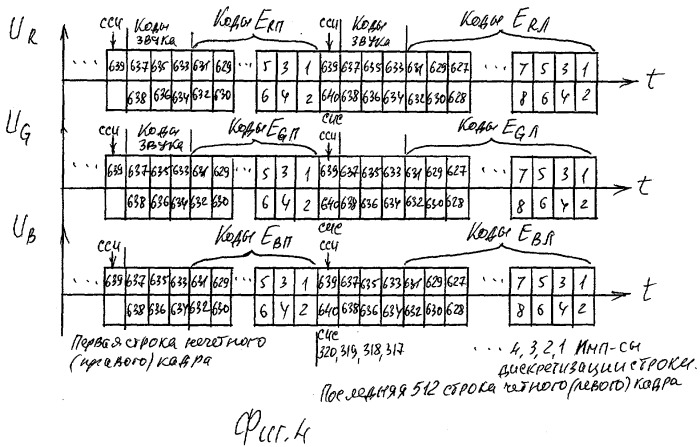 U_R
ССИ
Коды звука
Коды E_RП
ССИ
Коды звука
Коды E_RЛ
... 639 637 635 633 631 629 ... 5 3 1 639 637 635 633 631 629 627 ... 7 5 3 1
t
638 636 634 632 630 6 4 2 640 638 636 634 632 630 628 8 6 4 2
U_G
ССИ
Коды звука
Коды E_GП
СИС
ССИ
Коды E_GЛ
... 639 637 635 633 631 629 ... 5 3 1 639 637 635 633 631 629 627 ... 7 5 3 1
t
638 636 634 632 630 6 4 2 640 638 636 634 632 630 628 8 6 4 2
U_B
ССИ
Коды E_BП
СИС
ССИ
Коды E_BЛ
... 639 637 635 633 631 629 ... 5 3 1 639 637 635 633 631 629 627 ... 7 5 3 1
t
638 636 634 632 630 6 4 2 640 638 636 634 632 630 628 8 6 4 2
Первая строка нечетного
(правого) кадра
СИС
320, 319, 318, 317
... 4, 3, 2, 1 Имп-сы
дискретизации строки.
Последняя 512 строка четного (левого) кадра
Фиг. 4